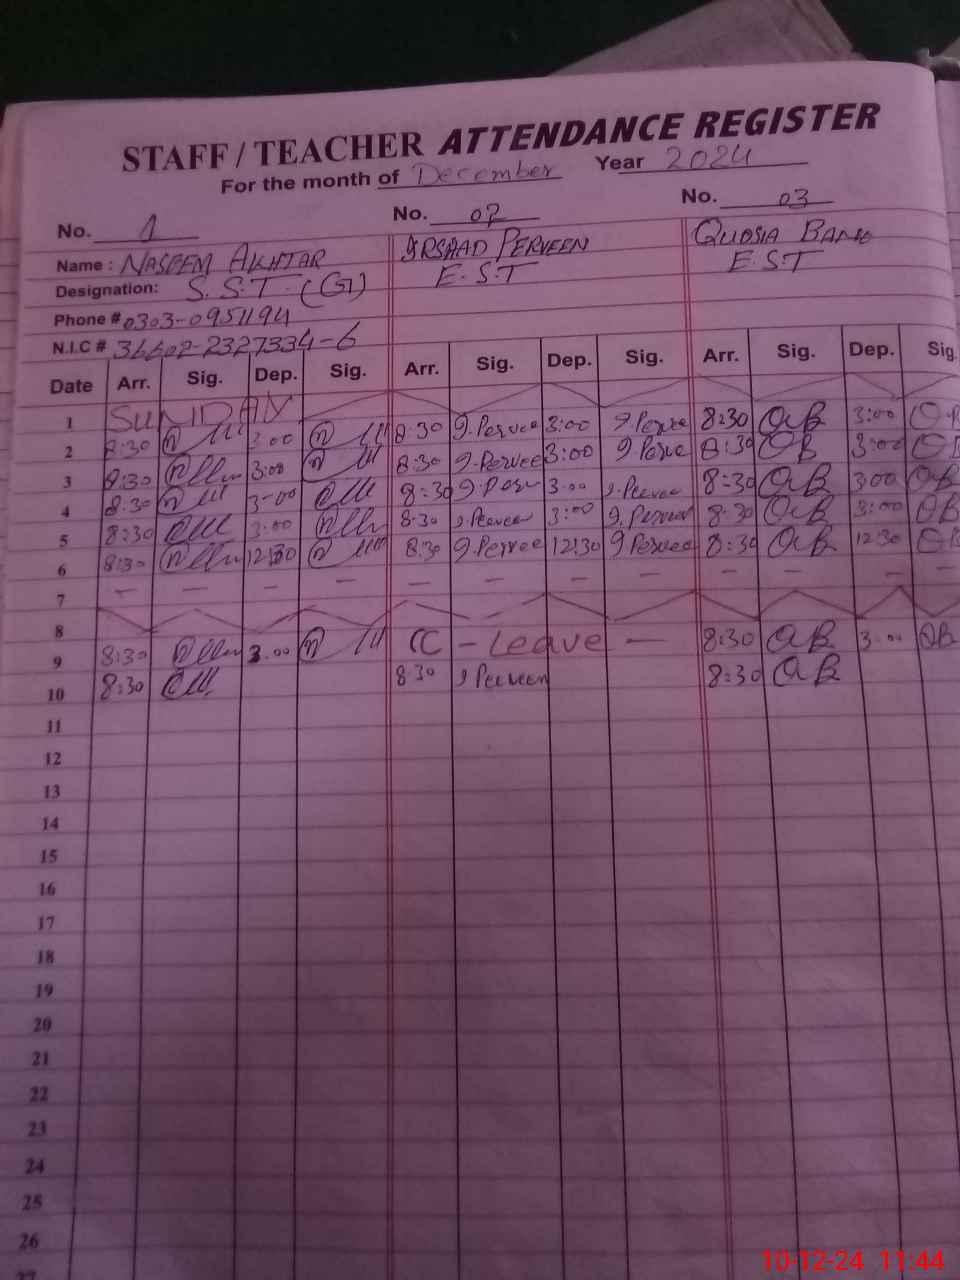 STAFF / TEACHER ATTENDANCE REGISTER
For the month of December Year 2024
No. 1 No. 02 No. 03
Name : NASEEM AKHTAR IRSHAD PERVEEN QUDSIA BANO
Designation: S.S.T (G) E.S.T E.S.T
Phone # 0303-0951194
N.I.C # 36602-2327334-6
Date Arr. Sig. Dep. Sig. Arr. Sig. Dep. Sig. Arr. Sig. Dep. Sig.
1 SUNDAY
2 8:30 3:00 8:30 I.Pervee 3:00 I.Perve 8:30 QB 3:00 QB
3 8:30 3:00 8:30 I.Pervee 3:00 I.Perve 8:30 QB 3:00 QB
4 8:30 3:00 8:30 3:00 I.Perveen 8:30 QB 3:00 QB
5 8:30 3:00 8:30 I.Perveen 3:00 I.Perveen 8:30 QB 3:00 QB
6 8:30 12:30 8:30 I.Pervee 12:30 I.Pervee 8:30 QB 12:30 QB
7 — — — — — — — — — — — —
8
9 8:30 3:00 CC - Leave — 8:30 QB 3:00 QB
10 8:30 8:30 I.Perveen 8:30 QB
11
12
13
14
15
16
17
18
19
20
21
22
23
24
25
26
27
10-12-24 11:44